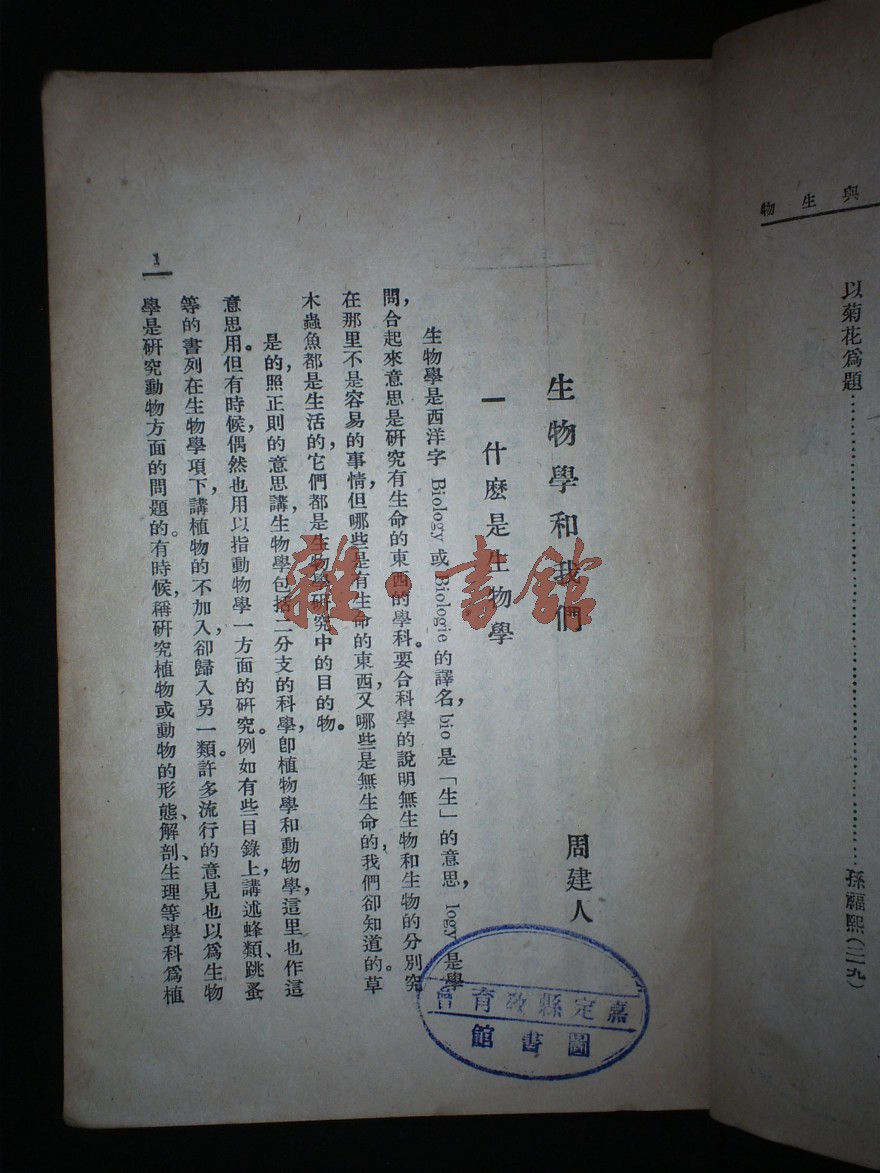 與生物
以菊花爲題……………………………孫福熙(二一九)
生物學和我們
周建人
一 什麽是生物學
生物學是西洋字 Biology 或 Biologie 的譯名，bio 是「生」的意思，logy 是學
問，合起來意思是研究有生命的東西的學科。要合科學的說明無生物和生物的分別究
在那里不是容易的事情，但哪些是有生命的東西，又哪些是無生命的，我們卻知道的。草
木蟲魚都是生活的，它們都是生物學研究中的目的物。
是的，照正則的意思講，生物學包括二分支的科學，卽植物學和動物學，這里也作這
意思用。但有時候，偶然也用以指動物學一方面的研究。例如有些目錄上，講述蜂類、跳蚤
等的書列在生物學項下，講植物的不加入，卻歸入另一類。許多流行的意見也以爲生物
學是研究動物方面的問題的。有時候，稱研究植物或動物的形態、解剖、生理等學科爲植
1
嘉定縣敎育會
圖書館
雜·書館